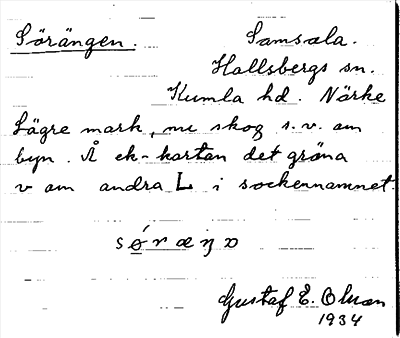 Sörängen. Samsala.
Hallsbergs sn.
Kumla hd. Närke
Lägre mark, nu skog s.v. om
byn. Å ek-kartan det gröna
v om andra L i sockennamnet.
sǿræŋɒ
Gustaf E. Olsson
1934